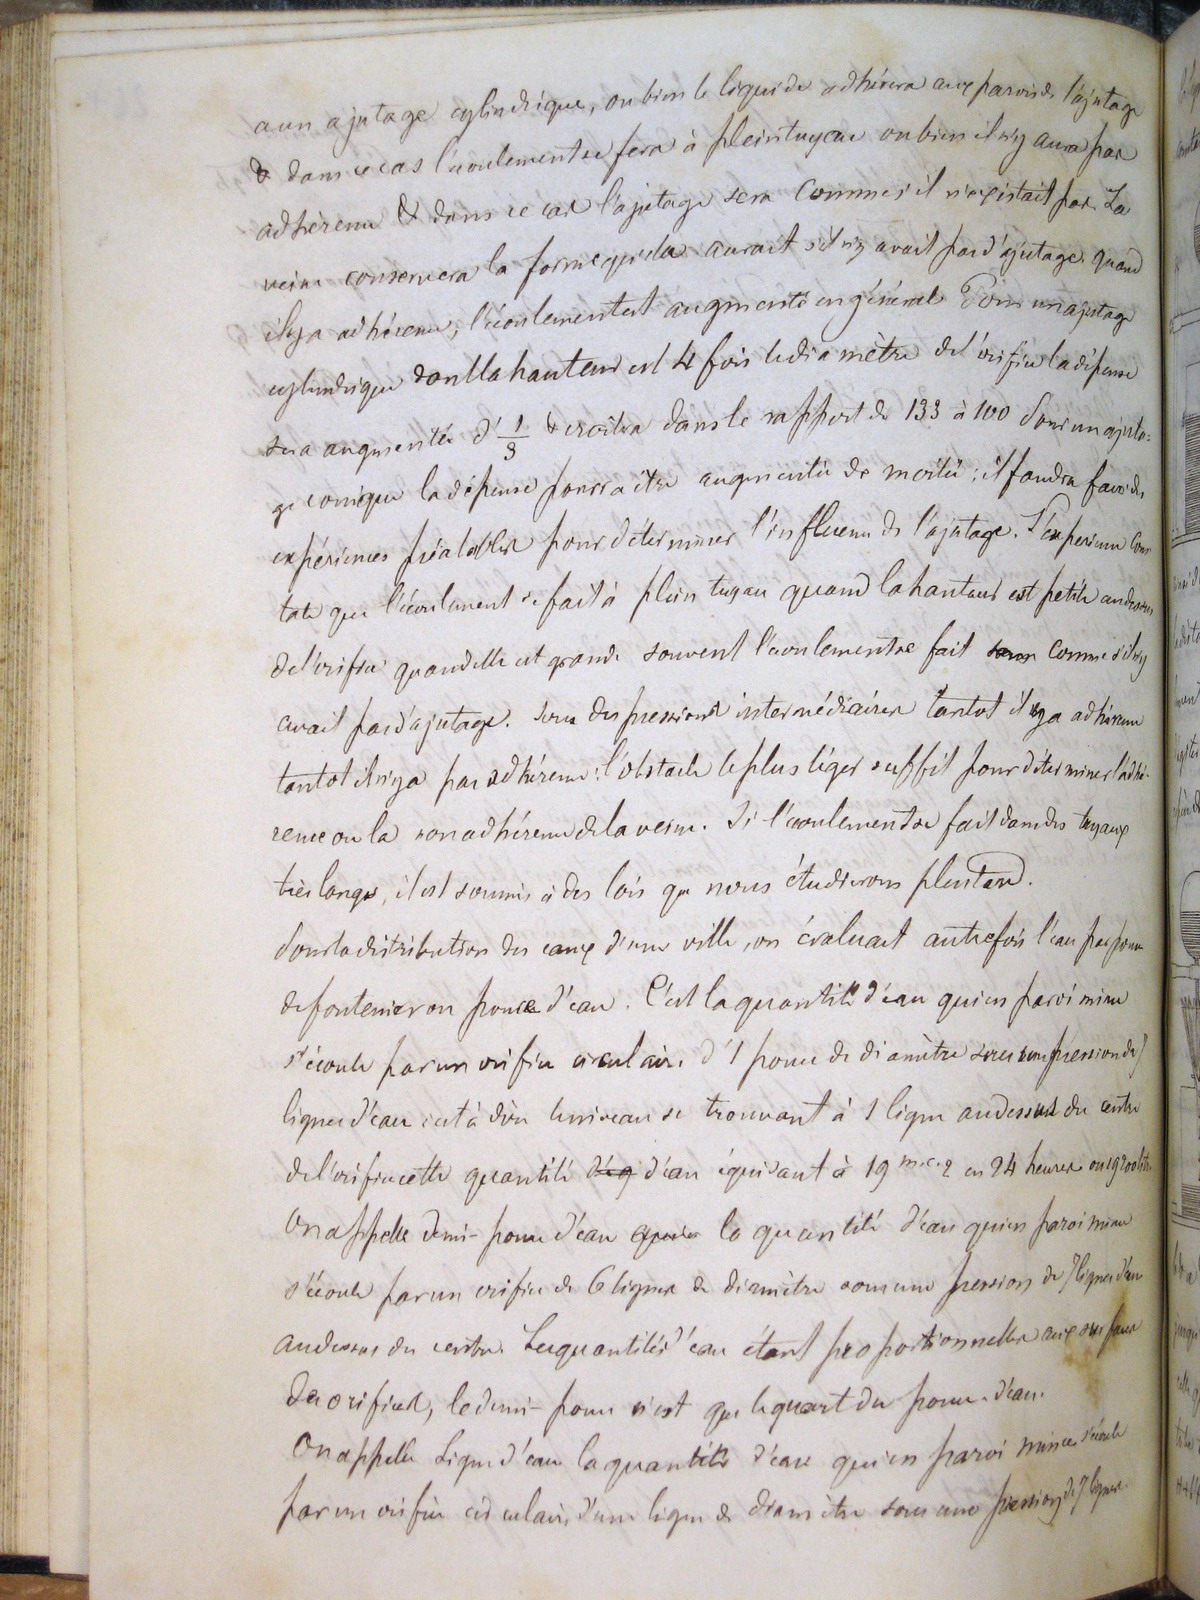 a un ajutage cylindrique, ou bien le liquide adhérera aux parois de l'ajutage
& dans ce cas l'écoulement se fera à plein tuyau ou bien il n'y aura pas
adhérence & dans ce cas l'ajutage sera comme s'il n'existait pas. La
veine conservera la forme qu'elle aurait s'il n'y avait pas d'ajutage. quand
il y a adhérence, l'écoulement est augmenté en général Pour un ajutage
cylindrique dont la hauteur est 4 fois le diamètre de l'orifice la dépense
sera augmentée d' 1/3 & croîtra dans le rapport de 133 à 100 Pour un ajuta-
ge conique la dépense pourra être augmentée de moitié ; il faudra faire des
expériences préalables pour déterminer l'influence de l'ajutage. L'expérience cons
tate que l'écoulement se fait à plein tuyau quand la hauteur est petite au dessus
de l'orifice quand elle est grande souvent l'écoulement se fait comme s'il n'y
avait pas d'ajutage. Sous des pressions intermédiaires tantot il y a adhérence
tantot il n'y a pas adhérence : l'obstacle le plus léger suffit pour déterminer l'adhé-
rence ou la non adhérence de la veine. Si l'écoulement se fait dans des tuyaux
très longs, il est soumis à des lois que nous étudierons plus tard.
Pour la distribution des eaux d'une ville, on évaluait autrefois l'eau par pouce
de fontenier ou pouce d'eau. C'est la quantité d'eau qui en paroi mince
s'écoule par un orifice circulaire d'1 pouce de diamètre sous une pression de 7
lignes d'eau c'est à dire le niveau se trouvant à 1 ligne au dessus du centre
de l'orifice cette quantité d'eau équivaut à 19 m.c. 2 en 24 heures ou 19200 lit.
On appelle demi-pouce d'eau la quantité d'eau qui en paroi mince
s'écoule par un orifice de 6 lignes de diamètre sous une pression de 7 lignes d'eau
au dessus du centre. Les quantités d'eau étant proportionnelles aux surfaces
des orifices, le demi-pouce n'est que le quart du pouce d'eau.
On appelle ligne d'eau la quantité d'eau qui en paroi mince s'écoule
par un orifice circulaire d'une ligne de diamètre sous une pression de 7 lignes.